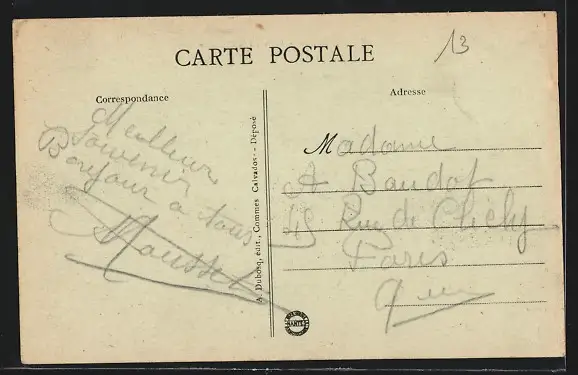 13
CARTE POSTALE
Correspondance
Adresse
Meilleur
Souvenir
Bonjour a tous
A. Dubosq, édit., Commes Calvados - Déposé
Madame
A Baudot
45 Rue de Clichy
Paris